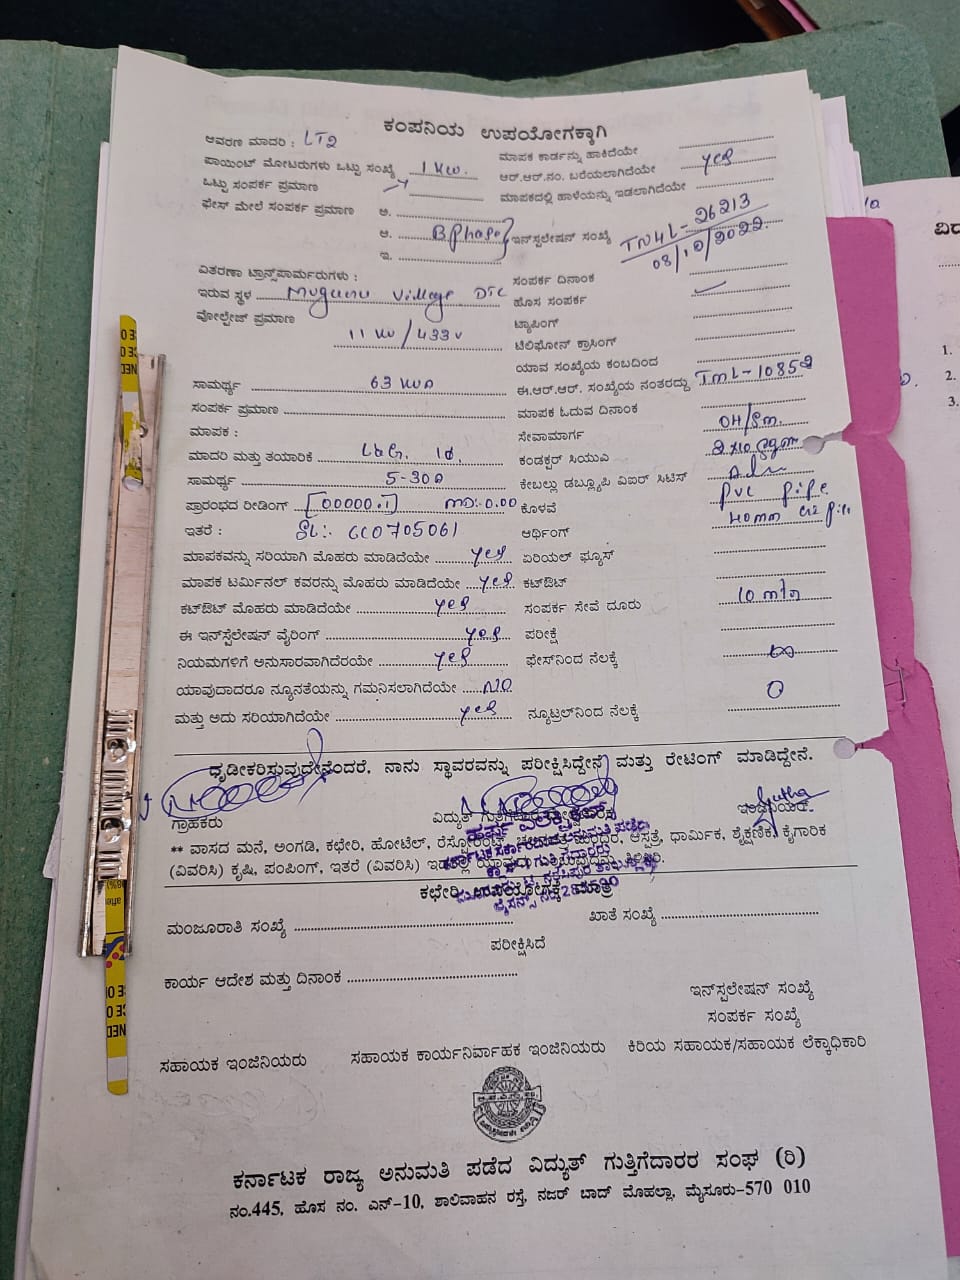 ಕಂಪನಿಯ ಉಪಯೋಗಕ್ಕಾಗಿ
ಆವರಣ ಮಾದರಿ : LT2
ಪಾಯಿಂಟ್ ಮೋಟರುಗಳು ಒಟ್ಟು ಸಂಖ್ಯೆ 1 KW.
ಒಟ್ಟು ಸಂಪರ್ಕ ಪ್ರಮಾಣ
ಫೇಸ್ ಮೇಲೆ ಸಂಪರ್ಕ ಪ್ರಮಾಣ ಅ.
ಆ. B Phase
ಇ.
ವಿತರಣಾ ಟ್ರಾನ್ಸ್‌ಪಾರ್ಮರುಗಳು :
ಇರುವ ಸ್ಥಳ Muguru Village DTC
ವೋಲ್ಟೇಜ್ ಪ್ರಮಾಣ
11 KV / 433 V
ಸಾಮರ್ಥ್ಯ 63 KVA
ಸಂಪರ್ಕ ಪ್ರಮಾಣ
ಮಾಪಕ :
ಮಾದರಿ ಮತ್ತು ತಯಾರಿಕೆ L&G.
ಸಾಮರ್ಥ್ಯ 5-30A
ಪ್ರಾರಂಭದ ರೀಡಿಂಗ್ 00000.1 MD:-0.00
ಇತರೆ : SL:-
ಮಾಪಕವನ್ನು ಸರಿಯಾಗಿ ಮೊಹರು ಮಾಡಿದೆಯೇ yes
ಮಾಪಕ ಟರ್ಮಿನಲ್ ಕವರನ್ನು ಮೊಹರು ಮಾಡಿದೆಯೇ yes
ಕಟ್‌ಔಟ್ ಮೊಹರು ಮಾಡಿದೆಯೇ yes
ಈ ಇನ್‌ಸ್ಟಲೇಷನ್ ವೈರಿಂಗ್ yes
ನಿಯಮಗಳಿಗೆ ಅನುಸಾರವಾಗಿದೆರಯೇ yes
ಯಾವುದಾದರೂ ನ್ಯೂನತೆಯನ್ನು ಗಮನಿಸಲಾಗಿದೆಯೇ No
ಮತ್ತು ಅದು ಸರಿಯಾಗಿದೆಯೇ yes
ಮಾಪಕ ಕಾರ್ಡನ್ನು ಹಾಕಿದೆಯೇ
ಆರ್.ಆರ್.ನಂ. ಬರೆಯಲಾಗಿದೆಯೇ yes
ಮಾಪಕದಲ್ಲಿ ಹಾಳೆಯನ್ನು ಇಡಲಾಗಿದೆಯೇ
ಇನ್‌ಸ್ಟಲೇಷನ್ ಸಂಖ್ಯೆ TN4L-26213
08/10/2022.
ಸಂಪರ್ಕ ದಿನಾಂಕ
ಹೊಸ ಸಂಪರ್ಕ
ಟ್ಯಾಪಿಂಗ್
ಟೆಲಿಫೋನ್ ಕ್ರಾಸಿಂಗ್
ಯಾವ ಸಂಖ್ಯೆಯ ಕಂಬದಿಂದ
ಈ.ಆರ್.ಆರ್. ಸಂಖ್ಯೆಯ ನಂತರದ್ದು TML-10852
ಮಾಪಕ ಓದುವ ದಿನಾಂಕ
ಸೇವಾಮಾರ್ಗ OH/Sm.
ಕಂಡಕ್ಟರ್ ಸಿಯುವಿ
ಕೇಬಲ್ಲು ಡಬ್ಲ್ಯೂಪಿ ವಿಐರ್ ಸಿಟಿಸ್
ಕೊಳವೆ PVC Pipe
ಆರ್ಥಿಂಗ್ 40mm
ಏರಿಯಲ್ ಫ್ಯೂಸ್
ಕಟ್‌ಔಟ್
ಸಂಪರ್ಕ ಸೇವೆ ದೂರು 10 mtr
ಪರೀಕ್ಷೆ
ಫೇಸ್‌ನಿಂದ ನೆಲಕ್ಕೆ ∞
ನ್ಯೂಟ್ರಲ್‌ನಿಂದ ನೆಲಕ್ಕೆ 0
ಧೃಡೀಕರಿಸುವುದೇನೆಂದರೆ, ನಾನು ಸ್ಥಾವರವನ್ನು ಪರೀಕ್ಷಿಸಿದ್ದೇನೆ ಮತ್ತು ರೇಟಿಂಗ್ ಮಾಡಿದ್ದೇನೆ.
ಗ್ರಾಹಕರು ವಿದ್ಯುತ್ ಇಂಜಿನಿಯರ್
** ವಾಸದ ಮನೆ, ಅಂಗಡಿ, ಕಛೇರಿ, ಹೋಟೆಲ್, ಆಸ್ಪತ್ರೆ, ಧಾರ್ಮಿಕ, ಶೈಕ್ಷಣಿಕ, ಕೈಗಾರಿಕ
(ವಿವರಿಸಿ) ಕೃಷಿ, ಪಂಪಿಂಗ್, ಇತರೆ (ವಿವರಿಸಿ)
ಕಛೇರಿ ಉಪಯೋಗಕ್ಕೆ ಮಾತ್ರ
ಮಂಜೂರಾತಿ ಸಂಖ್ಯೆ ಖಾತೆ ಸಂಖ್ಯೆ
ಪರೀಕ್ಷಿಸಿದೆ
ಕಾರ್ಯ ಆದೇಶ ಮತ್ತು ದಿನಾಂಕ
ಇನ್‌ಸ್ಟಲೇಷನ್ ಸಂಖ್ಯೆ
ಸಂಪರ್ಕ ಸಂಖ್ಯೆ
ಸಹಾಯಕ ಇಂಜಿನಿಯರು ಸಹಾಯಕ ಕಾರ್ಯನಿರ್ವಾಹಕ ಇಂಜಿನಿಯರು ಕಿರಿಯ ಸಹಾಯಕ/ಸಹಾಯಕ ಲೆಕ್ಕಾಧಿಕಾರಿ
ಕರ್ನಾಟಕ ರಾಜ್ಯ ಅನುಮತಿ ಪಡೆದ ವಿದ್ಯುತ್ ಗುತ್ತಿಗೆದಾರರ ಸಂಘ (ರಿ)
ನಂ.445, ಹೊಸ ನಂ. ಎನ್-10, ಶಾಲಿವಾಹನ ರಸ್ತೆ, ನಜರ್ ಬಾದ್ ಮೊಹಲ್ಲಾ, ಮೈಸೂರು-570 010
1.
2.
3.